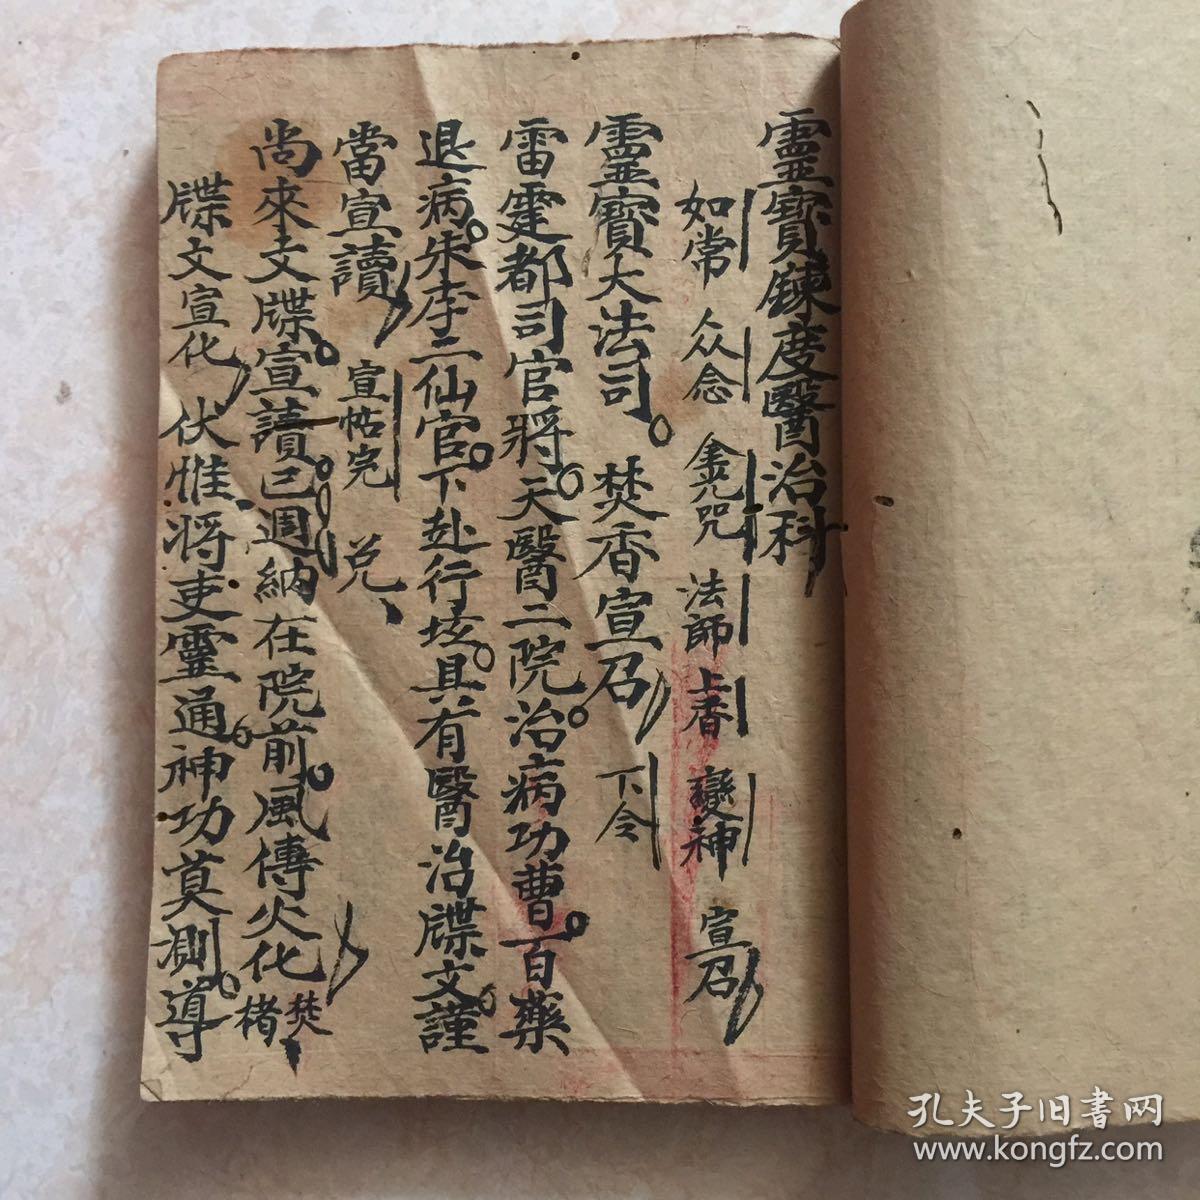 靈寶鍊度醫治科
如常 众念 金光咒 法師上香 變神 宣召
靈寳大法司。焚香宣召 下令
雷霆都司官將。天醫二院。治病功曹。百藥
退病。朱李二仙官。下赴行垓。具有醫治牒文。謹
當宣讀 宣帖完 兑
尚來文牒。宣讀。已週。納在院前。風傳火化 焚楮
牒文宣化 伏惟將吏靈通。神功莫測。導
孔夫子旧書网
www.kongfz.com